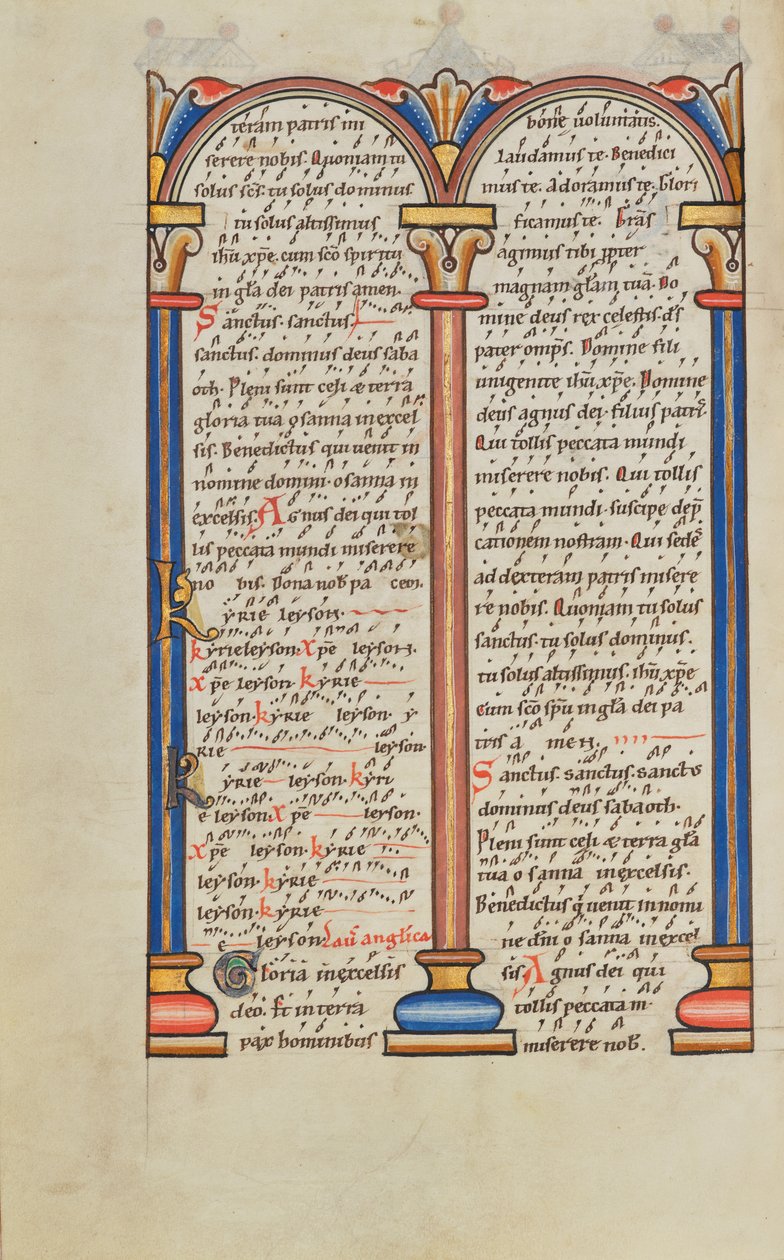 teram patris mi
serere nobis. Quoniam tu
solus scs. tu solus dominus
tu solus altissimus
ihu xpe. cum sco spiritu
in gła dei patris amen.
Sanctus. sanctus.
sanctus. dominus deus saba
oth. Pleni sunt celi & terra
gloria tua osanna in excel
sis. Benedictus qui uenit in
nomine domini. osanna in
excelsis. Agnus dei qui tol
lis peccata mundi miserere
no bis. Dona nob pa cem.
kyrie leyson.
kyrieleyson. xpe leyson.
xpe leyson. kyrie
leyson. kyrie leyson. ky
rie leyson.
kyrie leyson. kyri
e leyson. xpe leyson.
xpe leyson. kyrie
leyson. kyrie
leyson. kyrie
e leyson. Lau anglica
Gloria in excelsis
deo. Et in terra
pax hominibus
bone uoluntatis.
Laudamus te. Benedici
mus te. Adoramus te. Glori
ficamus te. Gras
agimus tibi ppter
magnam głam tuā. Do
mine deus rex celestis. ds
pater omps. Domine fili
unigenite ihu xpe. Domine
deus agnus dei. filius patr.
Qui tollis peccata mundi
miserere nobis. Qui tollis
peccata mundi. suscipe dep
cationem nostram. Qui sede
ad dexteram patris misere
re nobis. Quoniam tu solus
sanctus. tu solus dominus.
tu solus altissimus. ihu xpe
Cum sco spu in gła dei pa
tris a men.
Sanctus. sanctus. sanctus
dominus deus sabaoth.
Pleni sunt celi & terra gła
tua o sanna in excelsis.
Benedictus q uenit in nomi
ne dni o sanna in excel
sis. Agnus dei qui
tollis peccata m.
miserere nob.